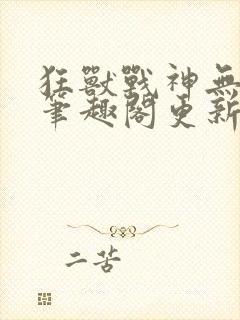 狂獸戰神無
筆趣閣更新
二苦